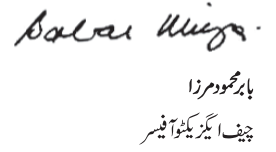 Babar Mirza
بابر محمود مرزا
چیف ایگزیکٹو آفیسر